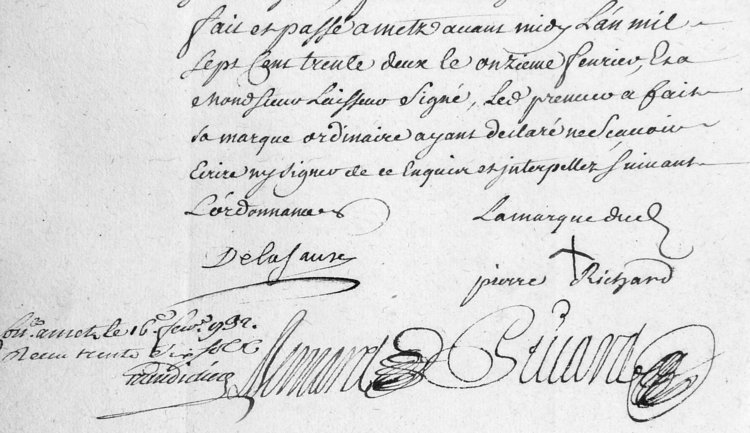 fait et passé a metz avant midy L'an mil
sept Cent trente deux le onzieme feurier, Et a
mondsieur Laisseur signé, Led premier a fait
sa marque ordinaire ayant declaré ne Scauoir
Ecrire ny signer de ce Enquis et interpellez suivant
L'ordonnance
La marque dud
Delasause
pierre Richard
a metz le 16e fevr. 1732.
Receu trente six solz